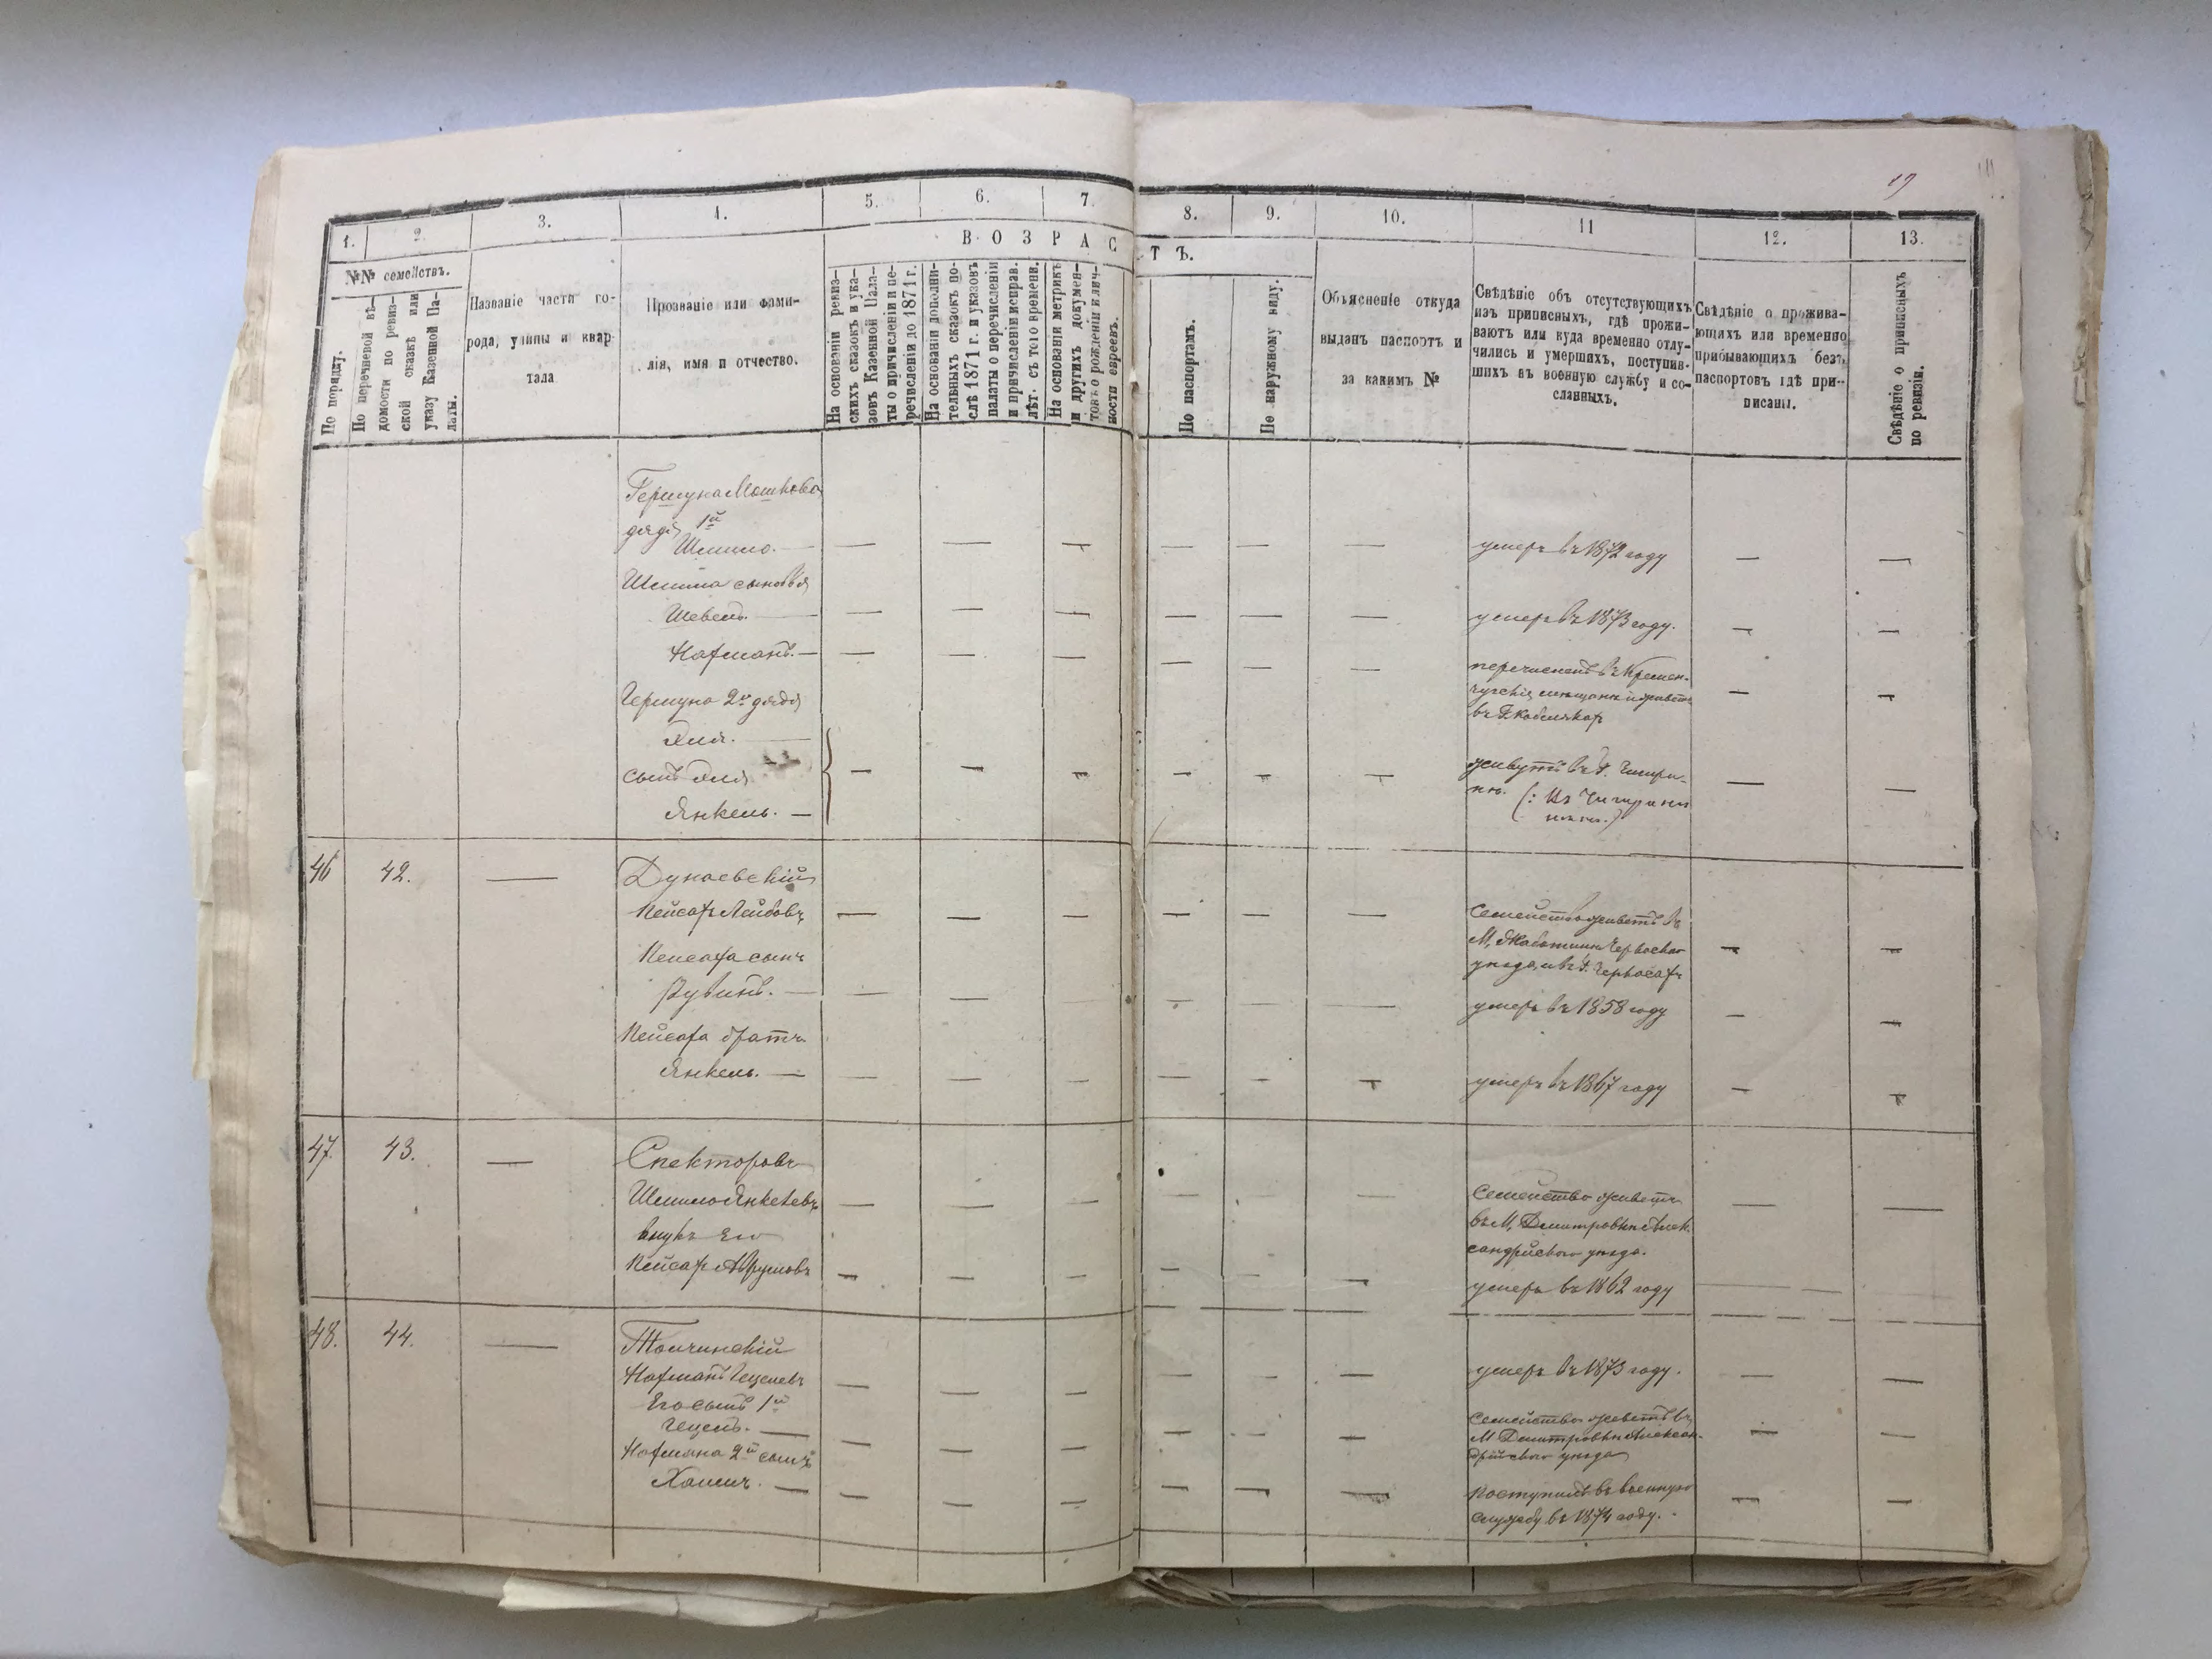 19
1.
2.
3.
4.
5.
6.
7.
8.
9.
10.
11
12.
13.
№№ семействъ.
По порядку.
По перечневой вѣ-
домости по ревиз-
ской сказкѣ или
указу Казенной Па-
латы.
Названіе части го-
рода, улицы и квар-
тала
Прозваніе или фами-
лія, имя и отчество.
ВОЗРАСТЪ.
На основаніи ревиз-
скихъ сказокъ и ука-
зовъ Казенной Пала-
ты о причисленіи и пе-
речисленіи до 1871 г.
На основаніи дополни-
тельныхъ сказокъ по-
слѣ 1871 г. и указовъ
палаты о перечисленіи
и причисленіи исправ.
лѣт. съ того времени.
На основаніи метрикъ
и другихъ докумен-
товъ о рожденіи и лич-
ности евреевъ.
По паспортамъ.
По наружному виду.
Объясненіе откуда
выданъ паспортъ и
за какимъ №
Свѣдѣніе объ отсутствующихъ
изъ приписныхъ, гдѣ прожи-
ваютъ или куда временно отлу-
чились и умершихъ, поступив-
шихъ въ военную службу и со-
сланныхъ.
Свѣдѣніе о прожива-
ющихъ или временно
прибывающихъ безъ
паспортовъ гдѣ при-
писаны.
Свѣдѣніе о приписныхъ
по ревизіи.
Гершуна Мошкова
дядя 1й
Шлиома. —
умеръ въ 1872 году
Шлиома сыновья
Шевель. —
умеръ въ 1873 году.
Нахманъ. —
перечисленъ въ Кремен-
чугскіе мѣщане и живетъ
въ Г. Кобелякахъ
Гершуна 2й дядя
Эля. —
сынъ Эля
Янкель. —
живутъ въ Г. Чигири-
нѣ. (: Из Чигирина
46
42.
Дунаевскій
Пейсахъ Лейбовъ
Семейство живетъ въ
М. Жаботинѣ Черкаскаго
уѣзда, и въ Г. Черкасахъ
Пейсаха сынъ
Рувинъ. —
умеръ въ 1858 году
Пейсаха братъ
Янкель. —
умеръ въ 1867 году
47
43.
Спекторовъ
Шлиома Янкелевъ
Семейство живетъ
въ М. Дмитровкѣ Алек-
сандрійскаго уѣзда.
внукъ Его
Пейсахъ Аврумовъ
умеръ въ 1862 году
48.
44.
Топчинскій
Нахманъ Гецелевъ
умеръ въ 1873 году.
Его сынъ 1й
Гецель. —
Семейство живетъ въ
М. Дмитровкѣ Алексан-
дрійскаго уѣзда
Нахмана 2й сынъ
Хаимъ. —
Поступилъ въ военную
службу въ 1874 году.